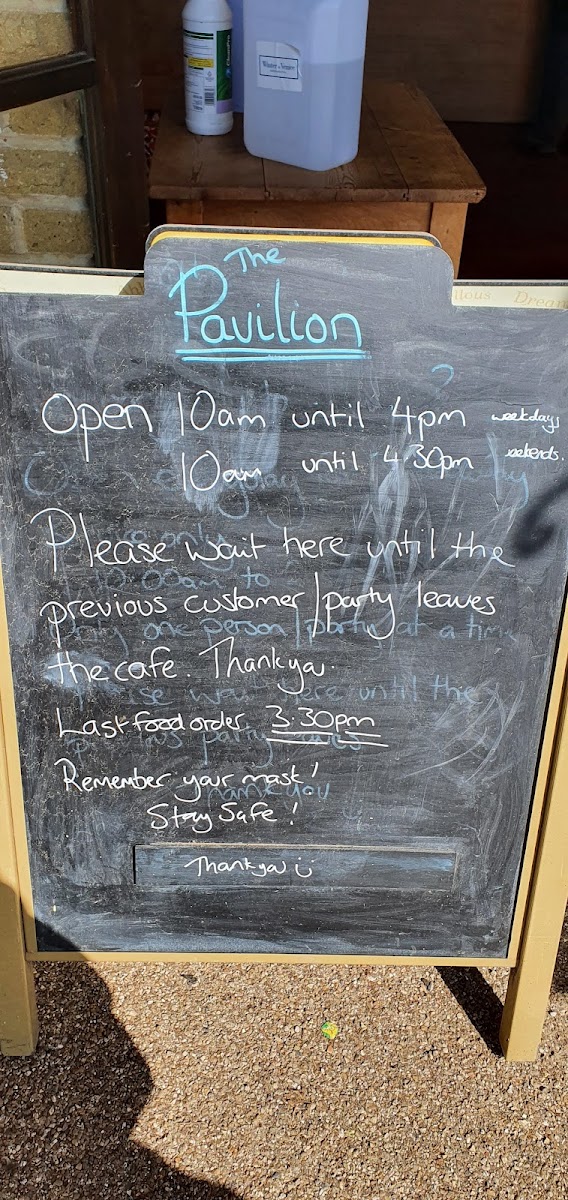 The
Pavilion
Open 10am until 4pm weekdays
10am until 4.30pm weekends.
Please wait here until the
previous customer/party leaves
the cafe. Thankyou.
Last food order 3.30pm
Remember your mask!
Stay Safe!
Thankyou